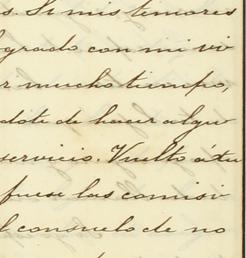 s. Si mis temores
lgrado con mi vi
r mucho tiempo,
dote de hacer algu
servicio. Vuelto á tu
fuese las comisi
l consuelo de no